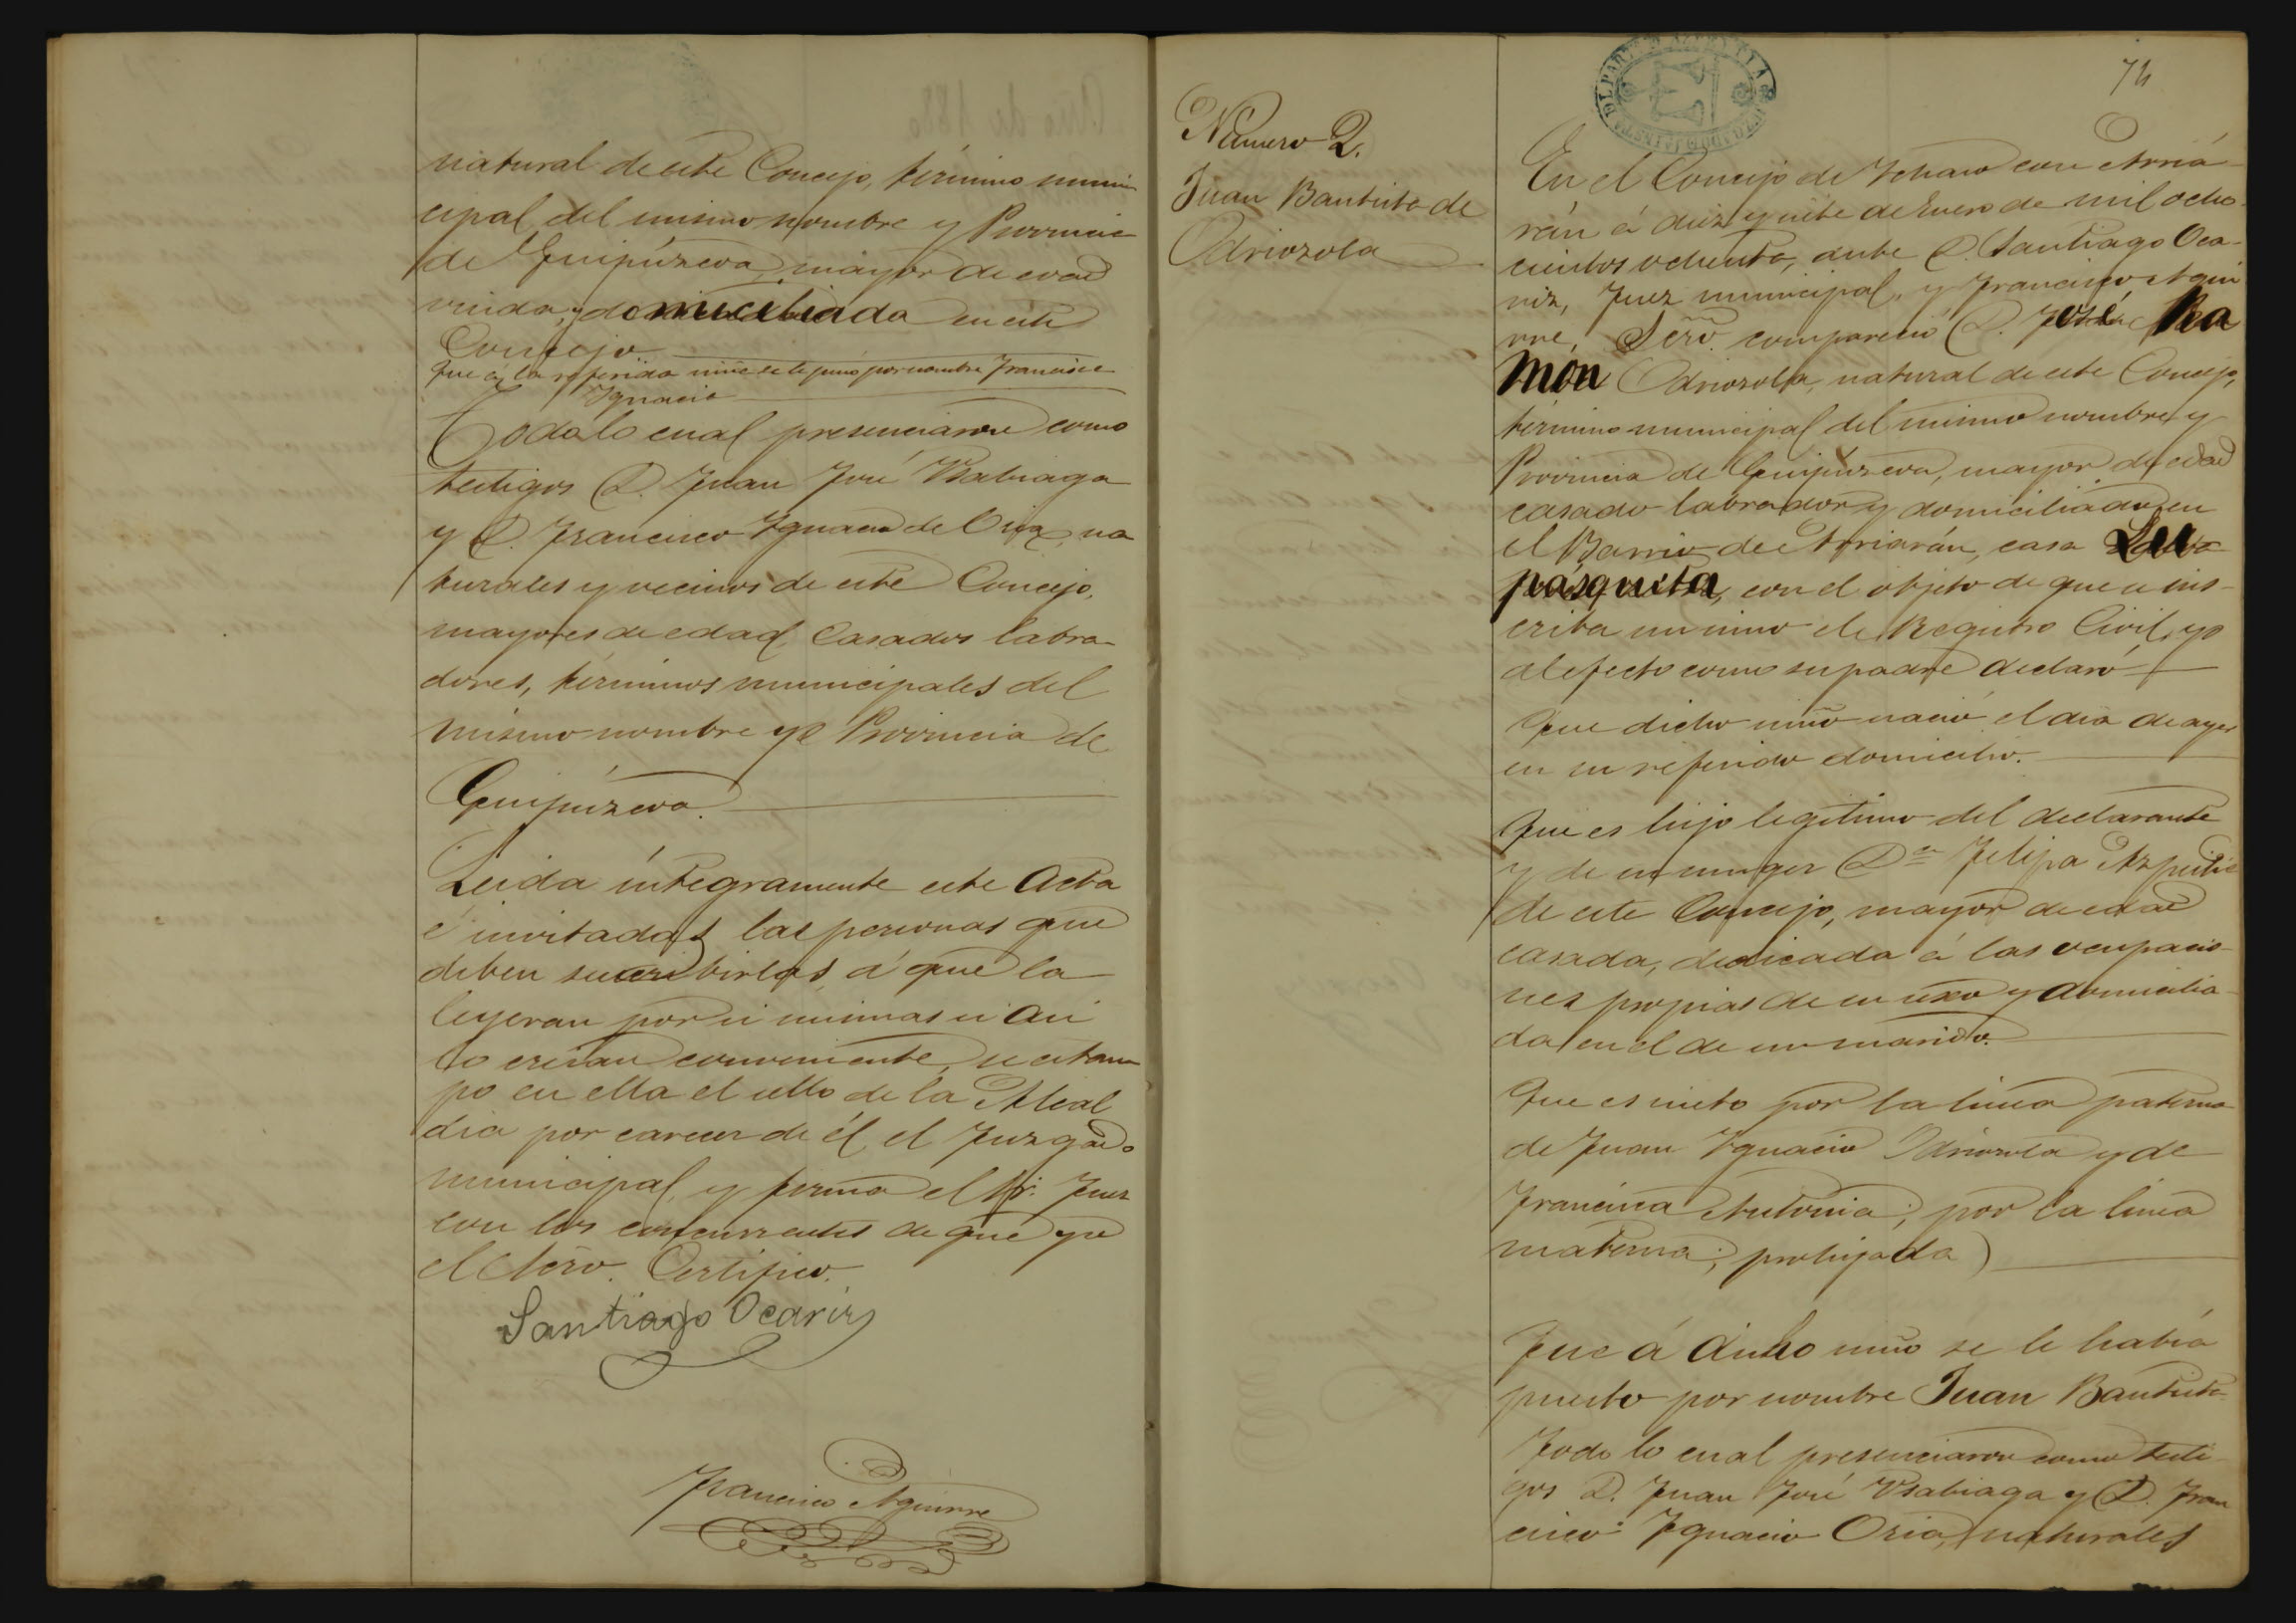 natural de este Concejo, término muni
cipal del mismo nombre y Provincia
de Guipúzcoa, mayor de edad
viuda, y domiciliada en este
Concejo
Que á la referida niña se le puso por nombre Francisca
Ignacia
Todo lo cual presenciaron como
testigos D. Juan José Usabiaga
y D. Francisco Ignacio de Oria, na
turales y vecinos de este Concejo,
mayores de edad, Casados labra
dores, términos municipales del
mismo nombre y Provincia de
Guipúzcoa.
Leida íntegramente este Acta
é invitadas las personas que
deben suscribirlas, á que la
leyeran por si mismas si asi
lo creian conveniente, se estam
po en ella el sello de la Alcal
dia por carecer de él el Juzgado
municipal, y firma el Sr. Juez
con los concurrentes de que yo
el Scrio. Certifico.
Santiago Ocariz
Francisco Aguirre
Numero 2.
Juan Bautista de
Odriozola
74
En el Concejo de Ichaso con Arria
rán á diez y siete de Enero de mil ocho
cientos ochenta, ante D. Santiago Oca
riz, Juez municipal, y Francisco Agui
rre, Scrio. compareció D. José Ra
món Odriozola, natural de este Concejo,
término municipal del mismo nombre y
Provincia de Guipúzcoa, mayor de edad
casado labrador y domiciliado en
el Barrio de Arriarán, casa Lu
pásqueta, con el objeto de que se ins-
criba un niño en el Registro Civil, y
al efecto como su padre declaró
Que dicho niño nació el dia de ayer
en su referido domicilio.
Que es hijo legítimo del declarante
y de su muger Dª Felipa Azpeitia
de este Concejo, mayor de edad
casada, dedicada á las ocupacio
nes propias de su sexo y domicilia
da en el de su marido.
Que es nieto por la línea paterna
de Juan Ignacio Odriozola y de
Francisca Antonia; por la línea
materna; prohijada
Que á dicho niño se le había
puesto por nombre Juan Bautista
Todo lo cual presenciaron como testi
gos D. Juan José Usabiaga y D. Fran
cisco Ignacio Oria, naturales